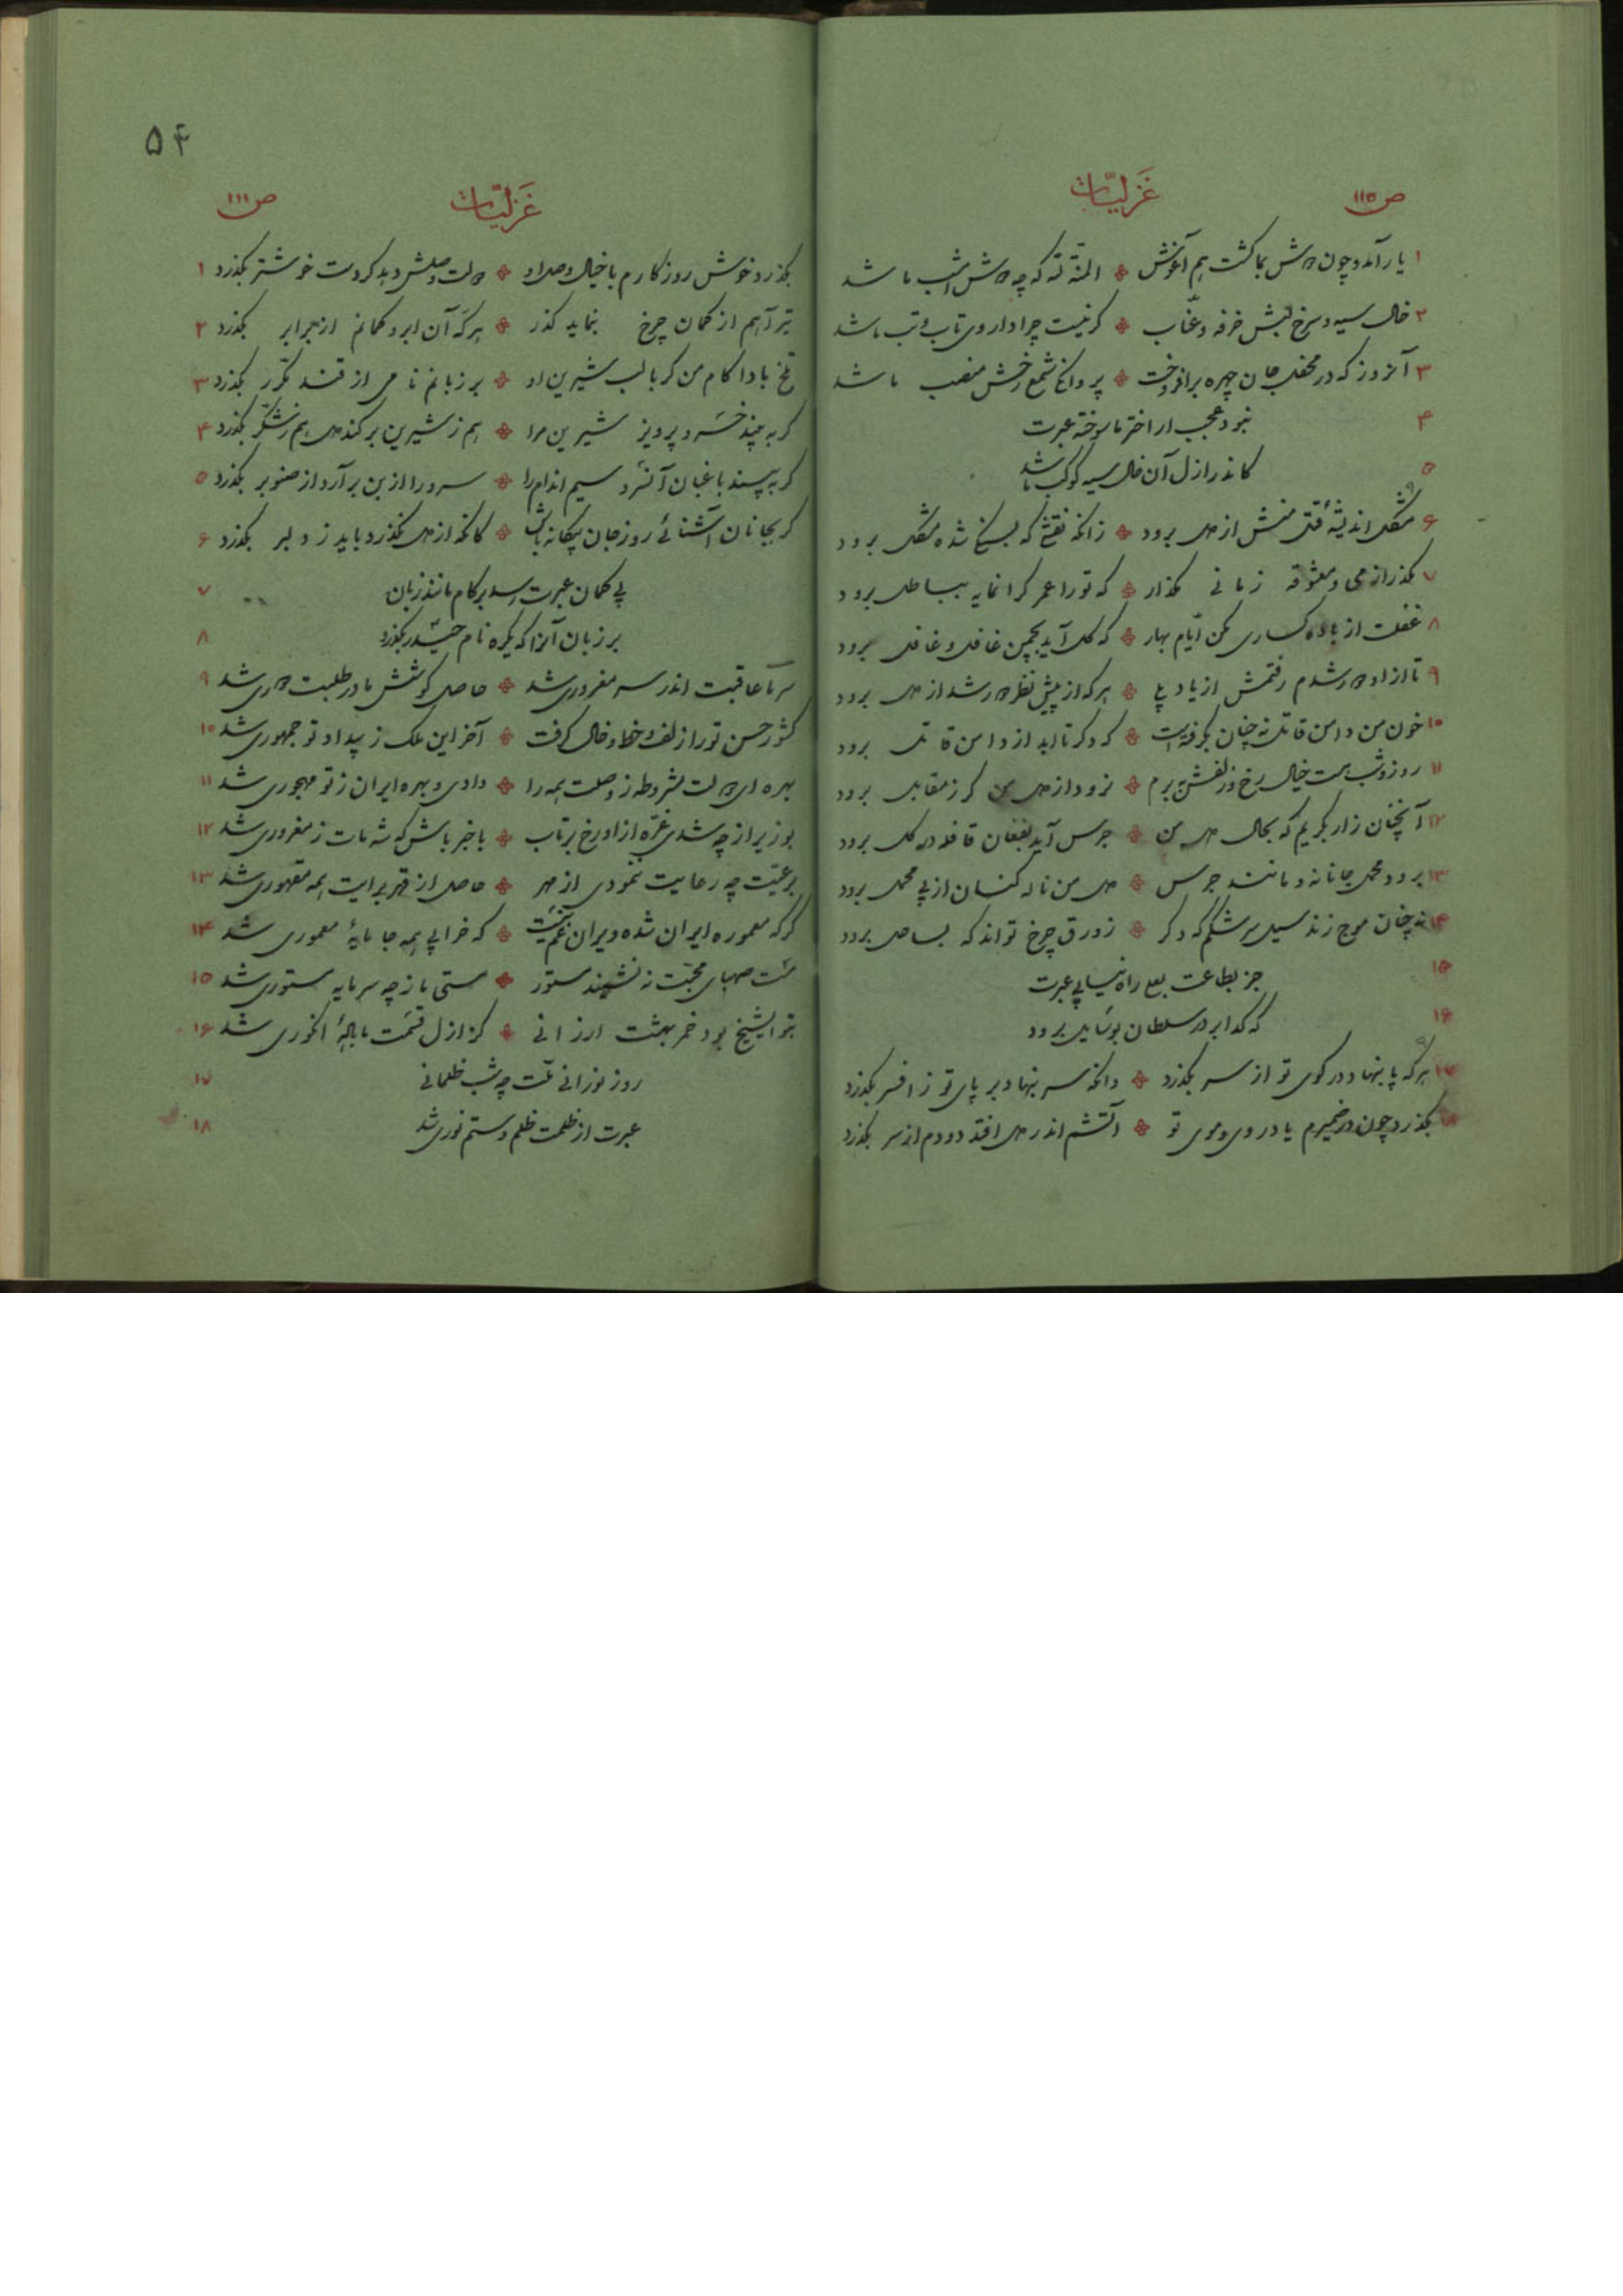 ص ۱۱۰
غزلیّات
۱ یار آمد و چون دوش بما گشت هم آغوش ٭ المنّة لله که چه دوش امشب ما شد
۲ خال سیه و سرخ لبش خرفه و عنّاب ٭ گر نیست چرا داروی تاب و تب ما شد
۳ آنروز که در محفل جان چهره برافروخت ٭ پروانگی شمع رخش منصب ما شد
۴ نبود عجب ار اختر ما سوخته عبرت
۵ کاندر ازل آن خال سیه کوکب ما شد
۶ مشکل اندیشهٔ قتل منش از دل برود ٭ زانکه نقشی که بسنگ شده مشکل برود
۷ مگذر از می و معشوقه زمانی مگذار ٭ که تو را عمر گرانمایه بباطل برود
۸ غفلت از باده گساری مکن ایّام بهار ٭ که گل آید بچمن غافل و غافل برود
۹ تا از او دور شدم رفتمش از یاد بلی ٭ هر که از پیش نظر دور شد از دل برود
۱۰ خون من دامن قاتل نه چنان بگرفته است ٭ که دگر تا ابد از دامن قاتل برود
۱۱ روز و شب بست خیال رخ و زلفش ببرم ٭ نرود از دل من گر ز مقابل برود
۱۲ آنچنان زار بگریم که بحال دل من ٭ جرس آید بفغان قافله در گل برود
۱۳ برود محمل جانانه و مانند جرس ٭ دل من ناله کنان از پی محمل برود
۱۴ نه چنان موج زند سیل سرشکم که دگر ٭ زورق چرخ تواند که بساحل برود
۱۵ جز بطاعت بعلی راه نیابی عبرت
۱۶ که گدا بر در سلطان بوسایل برود
۱۷ هر که پا بنهاد در کوی تو از سر بگذرد ٭ وانکه سر بنهاد بر پای تو ز افسر بگذرد
۱۸ بگذرد چون در ضمیرم یاد روی و موی تو ٭ آتشم اندر دل افتد دودم از سر بگذرد
۵۴
غزلیّات
ص ۱۱۱
بگذرد خوش روزگارم با خیال وصل او ٭ دولت وصلش دهد گر دست خوشتر بگذرد ۱
تیر آهم از کمان چرخ بنماید گذر ٭ هر گه آن ابرو کمانم از برابر بگذرد ۲
تلخ بادا کام من گر با لب شیرین او ٭ بر زبانم نامی از قند مکرّر بگذرد ۳
گر به بیند خسرو پرویز شیرین مرا ٭ هم ز شیرین بر کند دل هم ز شکّر بگذرد ۴
گر به بیند باغبان آنسرو سیم اندام را ٭ سرو را از بن برآرد از صنوبر بگذرد ۵
گر بجانان آشنائی روز جان بیگانه باش ٭ کانکه از دل نگذرد باید ز دلبر بگذرد ۶
بی گمان عبرت رسد بر کام مانند زبان ۷
بر زبان آنرا که یکره نام حیدر بگذرد ۸
سر ما عاقبت اندر سر مغروری شد ٭ حاصل کوشش ما در طلبت دوری شد ۹
کشور حسن تو را زلف و خط و خال گرفت ٭ آخر این ملک ز بیداد تو جمهوری شد ۱۰
بهره ای دولت مشروطه ز وصلت همه را ٭ دادی و بهره ایران ز تو مهجوری شد ۱۱
بوزیر از چه شدی غرّه از او رخ برتاب ٭ با خبر باش که شه مات ز مغروری شد ۱۲
برعیّت چه رعایت ننمودی از مهر ٭ حاصل از قهر برایت همه مقهوری شد ۱۳
گر که معموره ایران شده ویران غم نیست ٭ که خرابی همه جا مایهٔ معموری شد ۱۴
مست صهبای محبّت نه نشیند مستور ٭ مستی ما ز چه سرمایه مستوری شد ۱۵
بتو ایشیخ بود خمر بهشت ارزانی ٭ کز ازل قسمت ما بادهٔ انگوری شد ۱۶
روز نورانی ملّت چه شب ظلمانی ۱۷
عبرت از ظلمت ظلم و ستم نوری شد ۱۸